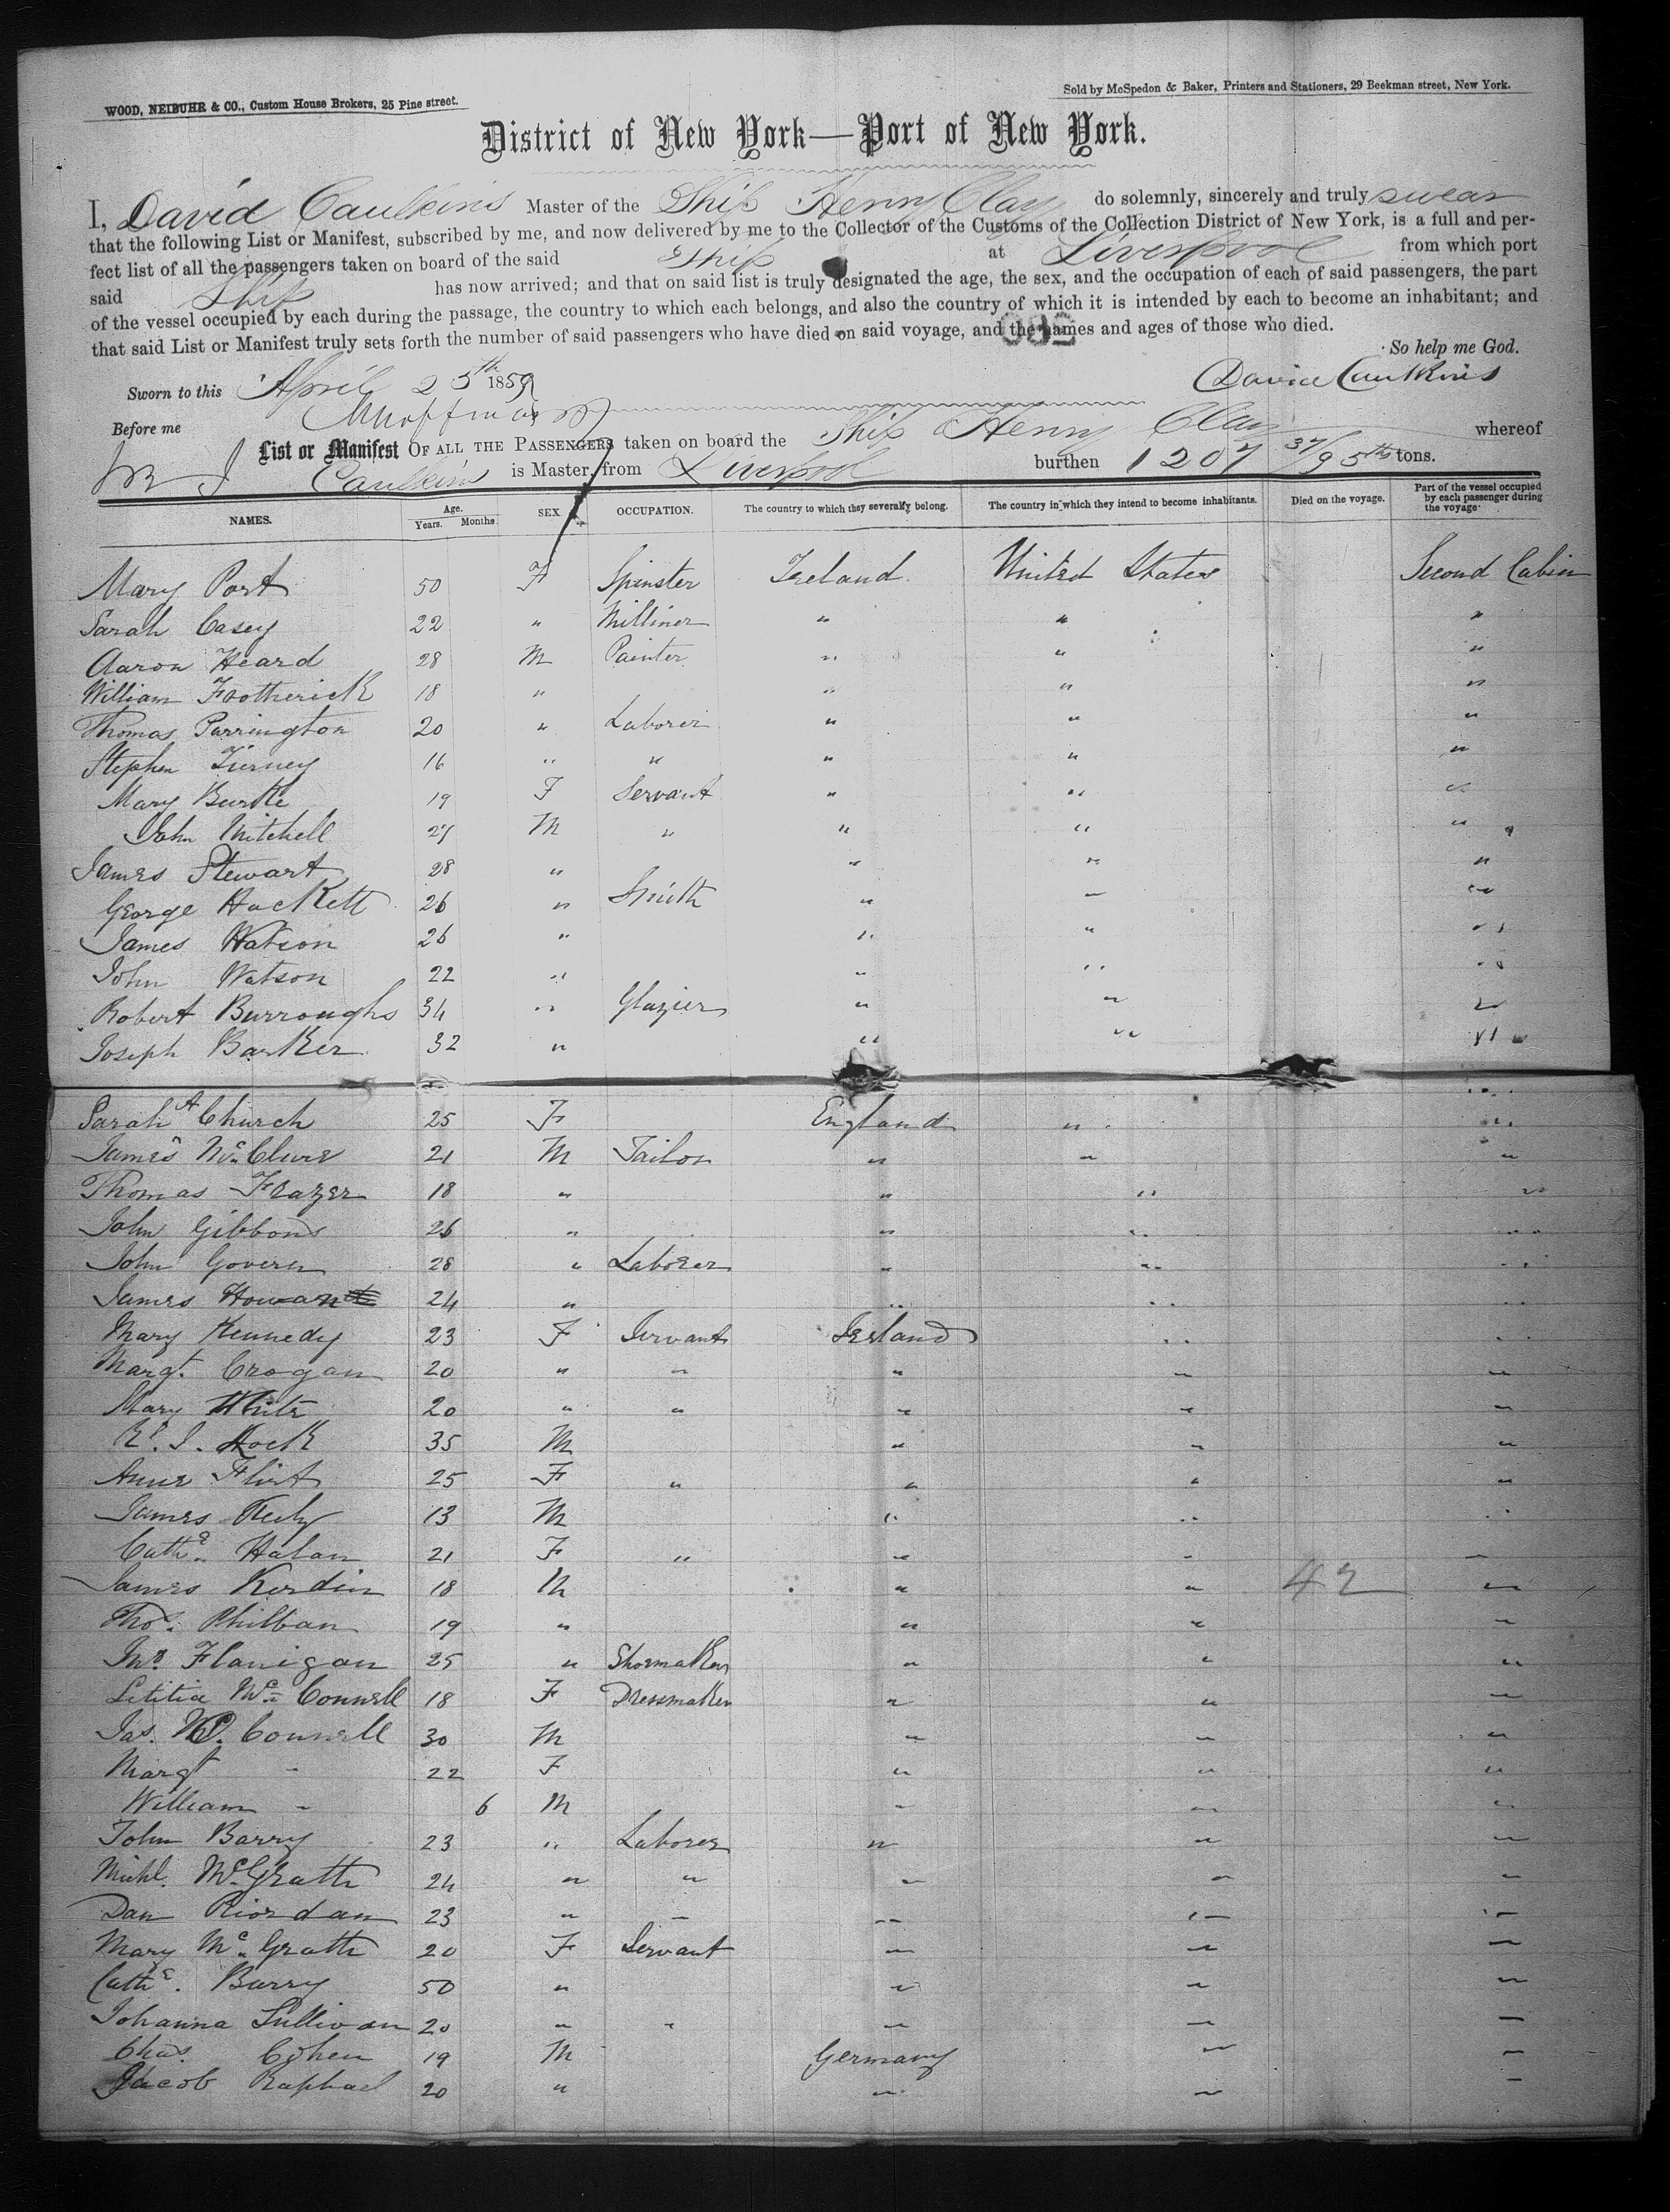 WOOD, NEIBUHR & CO., Custom House Brokers, 25 Pine street.
Sold by McSpedon & Baker, Printers and Stationers, 29 Beekman street, New York.
District of New York—Port of New York.
I, David Caulkins Master of the Ship Henry Clay do solemnly, sincerely and truly swear
that the following List or Manifest, subscribed by me, and now delivered by me to the Collector of the Customs of the Collection District of New York, is a full and per-
fect list of all the passengers taken on board of the said Ship at Liverpool from which port
said Ship has now arrived; and that on said list is truly designated the age, the sex, and the occupation of each of said passengers, the part
of the vessel occupied by each during the passage, the country to which each belongs, and also the country of which it is intended by each to become an inhabitant; and
that said List or Manifest truly sets forth the number of said passengers who have died on said voyage, and the names and ages of those who died.
So help me God.
Sworn to this April 25th 1859 David Caulkins
Before me
List or Manifest OF ALL THE PASSENGERS taken on board the Ship Henry Clay whereof
Caulkins is Master, from Liverpool burthen 1207 37/95ths tons.
NAMES. Age. Years. Months. SEX. OCCUPATION. The country to which they severally belong. The country in which they intend to become inhabitants. Died on the voyage. Part of the vessel occupied by each passenger during the voyage.
Mary Port 50 F Spinster Ireland United States Second Cabin
Sarah Casey 22 " Milliner " " "
Aaron Heard 28 M Painter " " "
William Frotherick 18 " " " "
Thomas Parrington 20 " Laborer " " "
Stephen Tierney 16 " " " " "
Mary Burke 19 F Servant " " "
John Mitchell 27 M " " " "
James Stewart 28 " " " "
George Hackett 26 " Smith " " "
James Watson 26 " " " "
John Watson 22 " " " "
Robert Burroughs 34 " Glazier " " "
Joseph Barker 32 " " " "
Sarah A Church 25 F England " "
James McClure 21 M Tailor " " "
Thomas Frazer 18 " " " "
John Gibbons 26 " " " "
John Govern 28 " Laborer " " "
James Howan 24 " " " "
Mary Kennedy 23 F Servant Ireland " "
Margt. Crogan 20 " " " " "
Mary White 20 " " " " "
Hock 35 M " " "
Anne Flint 25 F " " " "
James Kely 13 M " " "
Cathe. Halan 21 F " " " "
James Kerdin 18 M " " 42 "
Thos. Philban 19 " " " "
Jno. Flanigan 25 " Shoemaker " " "
Letitia McConnell 18 F Dressmaker " " "
Jas. Mc.Connell 30 M " " "
Margt " 22 F " " "
William " 6 M " " "
John Barry 23 " Laborer " " "
Michl. McGrath 24 " " " " "
Dan Riordan 23 " " " " "
Mary McGrath 20 F Servant " " "
Cathe. Barry 50 " " " "
Johanna Sullivan 20 " " " " "
Chas. Cohen 19 M Germany " "
Jacob Raphael 20 " " " "